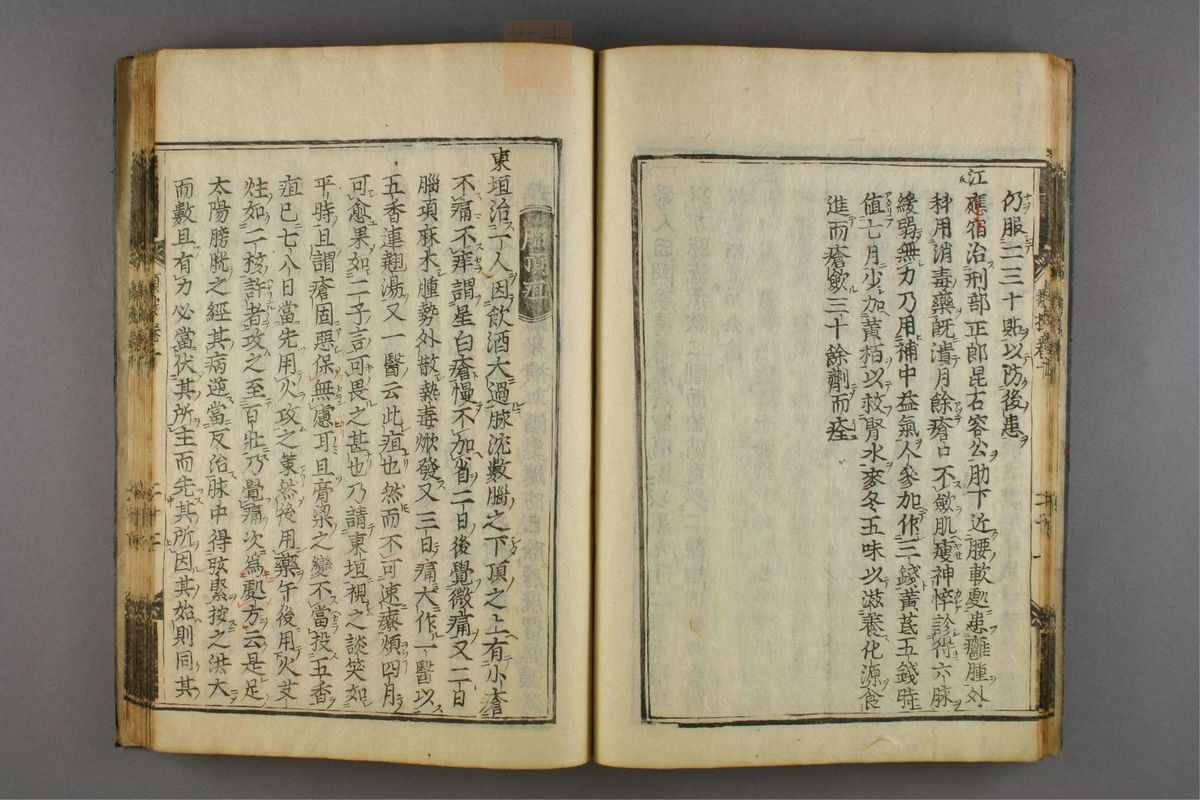 仍服二三十貼以防後患
江應宿治刑部正郎昆石容公肋下近腰軟處患癰腫外
科用消毒藥既潰月餘瘡口不斂肌瘦神悴診得六脉
緩弱無力乃用補中益氣人參加作三錢黃芪五錢時
值七月少加黃栢以救腎水麥冬五味以滋養化源食
進而瘡斂三十餘劑而痊
腦項疽
東垣治一人因飲酒太過脉沈數腦之下頂之上有小瘡
不痛不痒謂是白瘡慢不加省二日後覺微痛又二日
腦項麻木腫勢外散熱毒焮發又三日痛大作一醫以
五香連翹湯又一醫云此疽也然而不可速療須四月
可愈果如二子言可畏之甚也乃請東垣視之談笑如
平時且謂瘡固惡保無慮耳且膏粱之變不當投五香
疽已七八日當先用火攻之策然後用藥午後用火艾
炷如二核許者攻之至百壯乃覺痛次爲處方云是足
太陽膀胱之經其病逆當反治脉中得弦緊按之洪大
而數且有力必當伏其所主而先其所因其始則同其